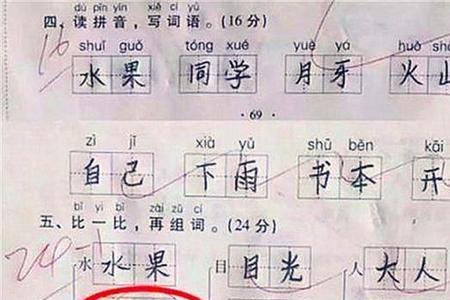 dú pīn yīn xiě cí yǔ
四、读拼音，写词语。(16分)
16
shuǐ guǒ tóng xué yuè yá huǒ shā
水果 同学 月牙 火山
· 69 ·
zì jǐ xià yǔ shū běn kāi
自己 下雨 书本 开
bǐ yi bǐ zài zǔ cí
五、比一比，再组词。(24分)
24
水 水果 日 目光 人 大人